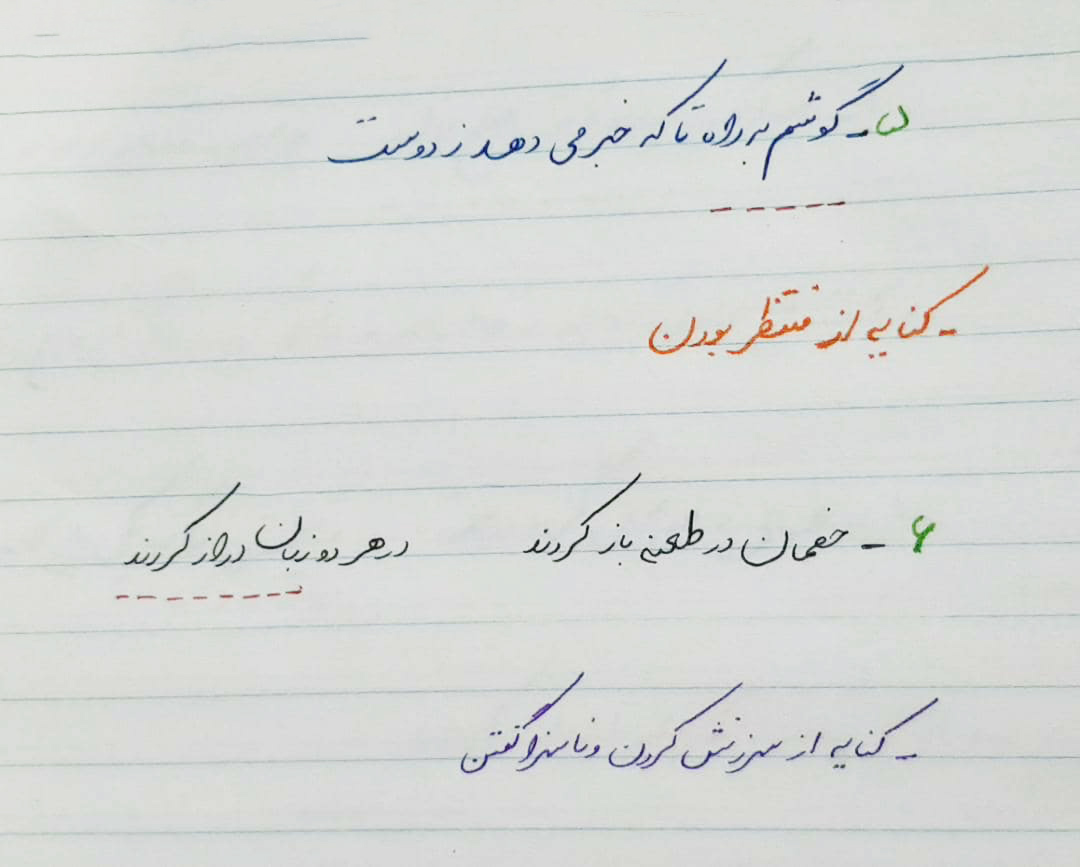 ۵- گوشم به راه تا که خبر می دهد ز دوست
- کنایه از منتظر بودن
۶- خصمان در طعنه باز کردند در هر دو زبان دراز کردند
- کنایه از سرزنش کردن و ناسزا گفتن